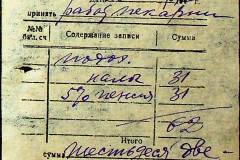 принять работ пекарни
№№ бал. сч Содержание записи Сумма
подох.
налог 31
5% пенсия 31
62
Итого
сумма шестьдеся две